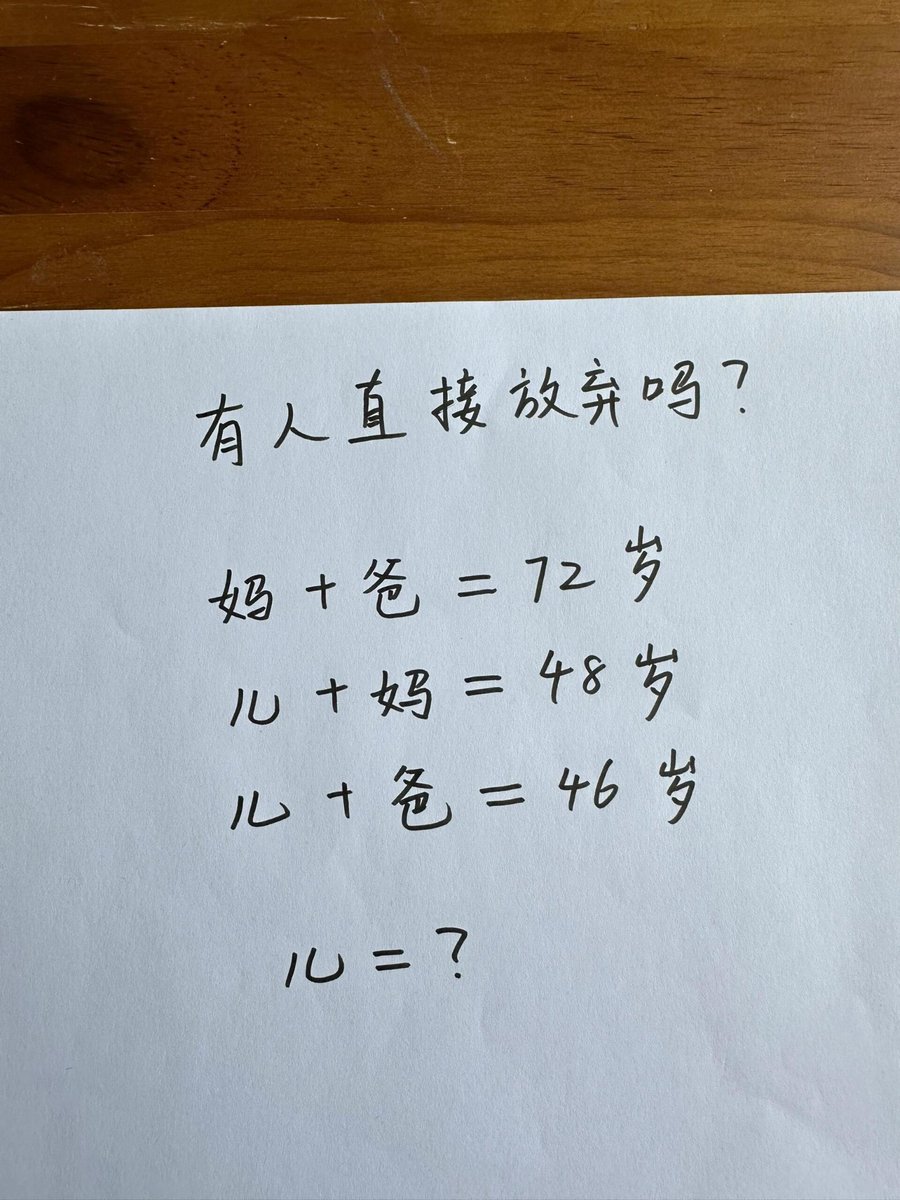 有人直接放弃吗?
妈+爸=72岁
儿+妈=48岁
儿+爸=46岁
儿=?